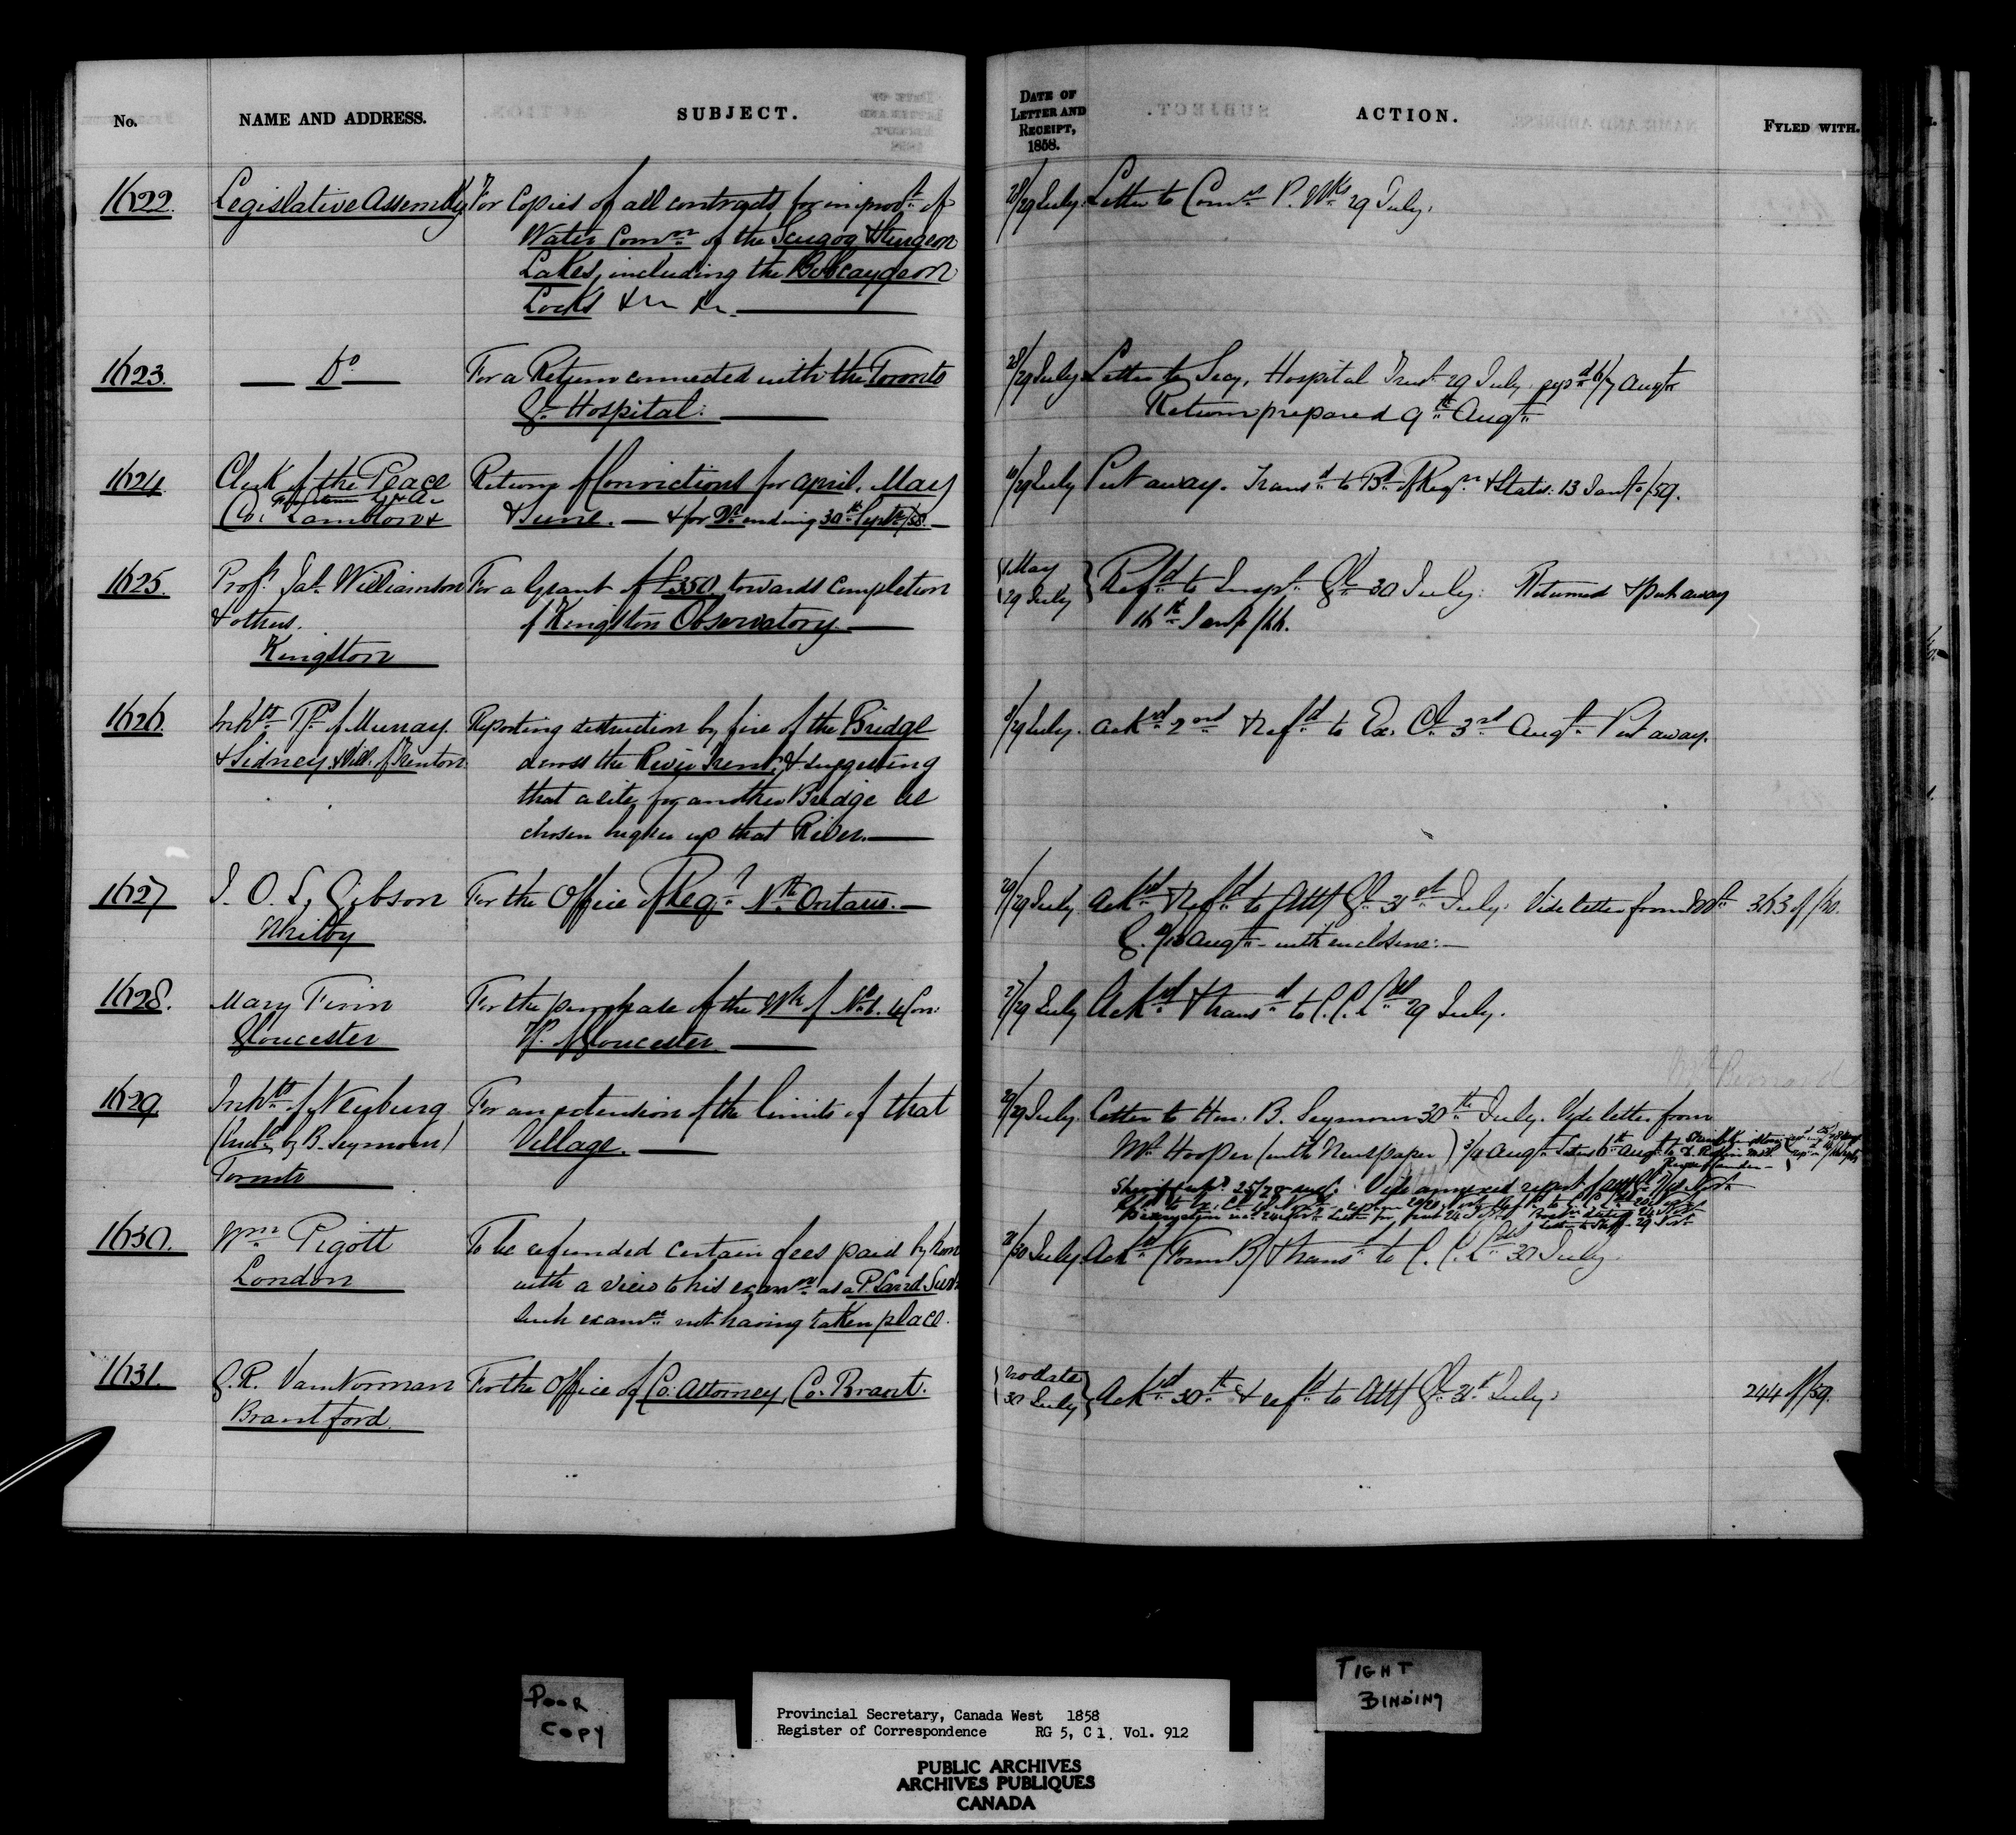 No.
NAME AND ADDRESS.
SUBJECT.
DATE OF
LETTER AND
RECEIPT,
1858.
ACTION.
FYLED WITH.
1622.
Legislative Assembly
For Copies of all contracts for improvt. of
Water Commn. of the Scugog & Sturgeon
Lakes, including the Bobcaygeon
Locks &c &c.
28/29 July.
Letter to Comr. P. Wks. 29 July.
1623.
Do.
For a Return connected with the Toronto
Gl. Hospital.
28/29 July
Letter to Secy. Hospital Trust 29 July repd. 6/7 Augt.
Return prepared 9th. Augt.
1624.
Clerk of the Peace
Co. Lambton &
Returns of Convictions for April, May
& June. — & for Qr. ending 30th. Septr./58.
29 July
Put away. Transd. to Bd. of Regn. & Statis: 13 Jany./59.
1625.
Profr. Jas. Williamson
& others.
Kingston
For a Grant of £350 towards completion
of Kingston Observatory.
May
29 July
Refd. to Inspr. Gl. 30 July. Returned & put away
16th. Jany/66.
1626.
Inhts. Tp. of Murray
& Sidney & Vill. of Trenton
Reporting destruction by fire of the Bridge
across the River Trent, & suggesting
that a site for another Bridge be
chosen higher up that River.
/29 July.
Ackd. 2nd. & Refd. to Ex. Cl. 3rd. Augt. Put away.
1627
J. O. S. Gibson
Whitby
For the Office of Regr. Nth. Ontario.
29/29 July
Ackd. & Refd. to Atty Gl. 31st. July. Vide letter from
Augt. with enclosure.
363 of/60.
1628.
Mary Finn
Gloucester
For the purchase of the Wh of No. 6. 4 Con:
Tp. of Gloucester
27/29 July
Ackd. & transd. to C. C. Lds. 29 July.
1629
Inhts. of Newburg
(Encld. by B. Seymour)
Toronto
For an extension of the limits of that
Village.
29/29 July.
Letter to Hon. B. Seymour 30th. July. Vide letter from
Mr. Hooper (with Newspaper) 3/4 Augt.
Vide annexed report of
1630.
Wm. Pigott
London
To be refunded certain fees paid by him
with a view to his examn. as a P. Land Survr
such examn. not having taken place.
28/30 July.
Ackd. (Form B) & transd. to C. C. Lds. 30 July.
1631.
G. R. VanNorman
Brantford.
For the Office of Co: Attorney, Co. Brant.
no date
30 July
Ackd. 30th. & refd. to Atty Gl. 31st. July.
244 of/59.
POOR
COPY
TIGHT
BINDING
Provincial Secretary, Canada West 1858
Register of Correspondence RG 5, C 1, Vol. 912
PUBLIC ARCHIVES
ARCHIVES PUBLIQUES
CANADA